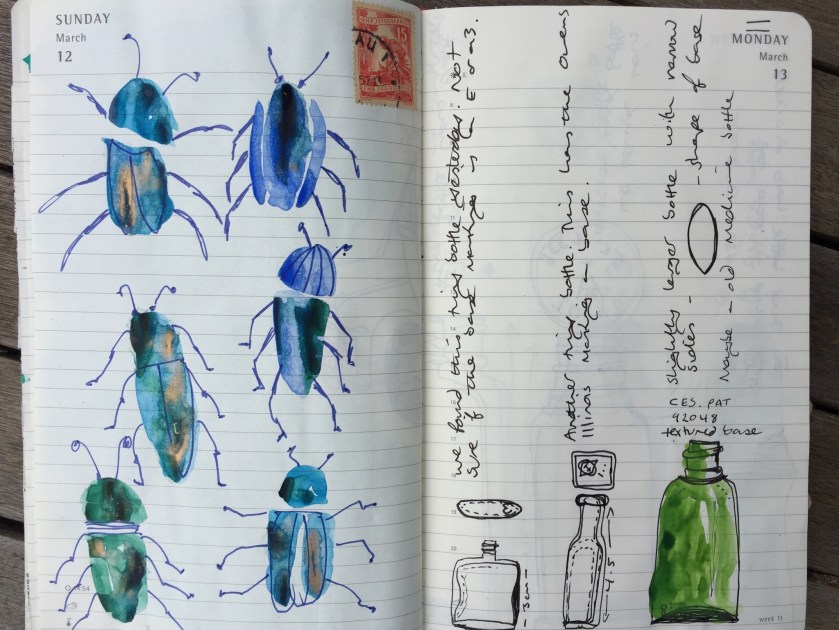 SUNDAY
March
12
15
MONDAY
March
13
we found this tiny bottle yesterday. Not
sure if the base markings is a E or a 3.
Another tiny bottle. This has the owens
Illinois markings on base.
slightly larger bottle with narrow
sides - - shape of base
Maybe - old medicine bottle
CES. PAT
92048
textured base
- 3cm -
4.5
20
week 11